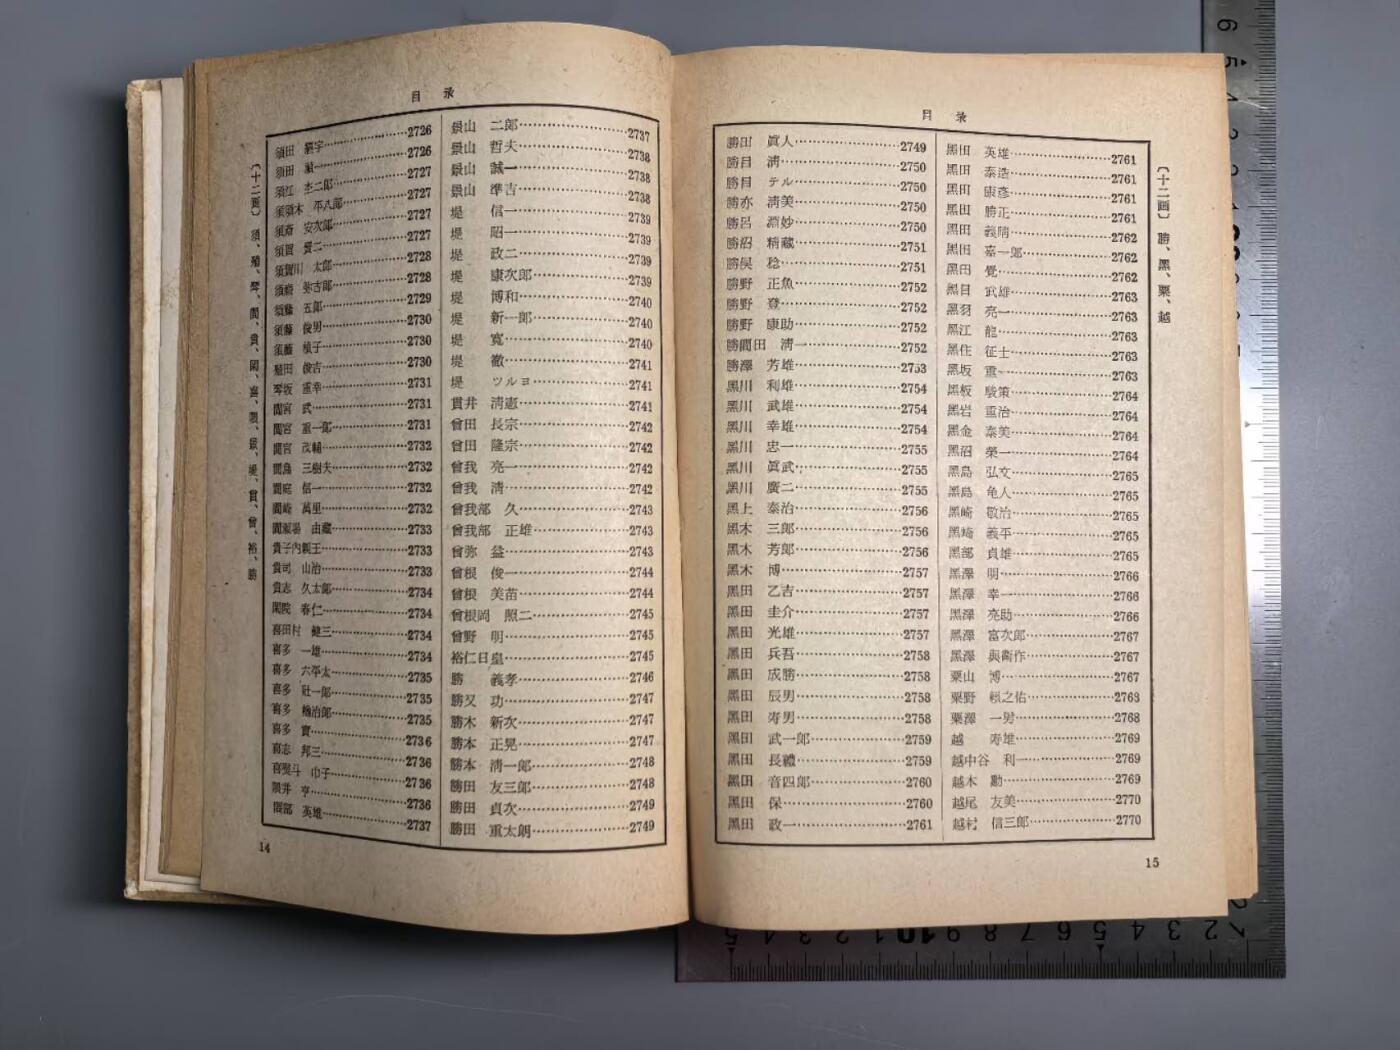 目　录
須田　[...]宇……2726
須田　禎一……2726
須江　杢二郎……2727
須須木　平八郎……2727
須斎　安次郎……2727
須賀　賢二……2727
須賀川　太郎……2728
須崎　弥古郎……2728
須藤　五郎……2729
須藤　俊男……2730
須藤　禎子……2730
殖田　俊吉……2730
琴坂　重幸……2731
間宮　武……2731
間宮　重一郎……2731
間宮　茂輔……2732
間島　三樹夫……2732
間庭　信一……2732
間崎　萬里……2732
間瀬場　由蔵……2733
貴子内親王……2733
貴司　山治……2733
貴志　久太郎……2734
閑院　春仁……2734
喜田村　健三……2734
喜多　一雄……2734
喜多　六平太……2735
喜多　壯一郎……2735
喜多　楢治郎……2735
喜多　實……2736
喜志　邦三……2736
喜熨斗　巾子……2736
隈井　亨……2736
隈部　英雄……2737
景山　二郎……2737
景山　哲夫……2738
景山　誠一……2738
景山　準吉……2738
堤　信一……2739
堤　昭一……2739
堤　政二……2739
堤　康次郎……2739
堤　博和……2740
堤　新一郎……2740
堤　寛……2740
堤　徹……2741
堤　ツルヨ……2741
貫井　清憲……2741
曾田　長宗……2742
曾田　隆宗……2742
曾我　亮一……2742
曾我　清……2742
曾我部　久……2743
曾我部　正雄……2743
曾弥　益……2743
曾根　俊一……2744
曾根　美苗……2744
曾根岡　照二……2745
曾野　明……2745
裕仁日皇……2745
勝　義孝……2746
勝又　功……2747
勝木　新次……2747
勝本　正晃……2747
勝本　清一郎……2748
勝田　友三郎……2748
勝田　貞次……2749
勝田　重太朗……2749
〔十二画〕須、殖、琴、間、貴、閑、喜、隈、景、堤、貫、曾、裕、勝
14
目　录
勝田　眞人……2749
勝目　清……2750
勝目　テル……2750
勝亦　清美……2750
勝呂　淵妙……2750
勝沼　精藏……2751
勝俣　稔……2751
勝野　正魚……2752
勝野　登……2752
勝野　康助……2752
勝間田　清一……2752
勝澤　芳雄……2753
黑川　利雄……2754
黑川　武雄……2754
黑川　幸雄……2754
黑川　忠一……2755
黑川　眞武……2755
黑川　廣二……2755
黑上　泰治……2756
黑木　三郎……2756
黑木　芳郎……2756
黑木　博……2757
黑田　乙吉……2757
黑田　圭介……2757
黑田　光雄……2757
黑田　兵吾……2758
黑田　成勝……2758
黑田　辰男……2758
黑田　寿男……2758
黑田　武一郎……2759
黑田　長禮……2759
黑田　音四郎……2760
黑田　保……2760
黑田　政一……2761
黑田　英雄……2761
黑田　泰造……2761
黑田　康彦……2761
黑田　勝正……2761
黑田　義晴……2762
黑田　嘉一郎……2762
黑田　覺……2762
黑目　武雄……2763
黑羽　亮一……2763
黑江　龍……2763
黑住　征士……2763
黑坂　重一……2763
黑板　駿策……2764
黑岩　重治……2764
黑金　泰美……2764
黑沼　榮一……2764
黑島　弘文……2765
黑島　亀人……2765
黑崎　敬治……2765
黑崎　義平……2765
黑部　貞雄……2765
黑澤　明……2766
黑澤　幸一……2766
黑澤　亮助……2766
黑澤　富次郎……2767
黑澤　與衛作……2767
粟山　博……2767
粟野　頼之佑……2768
粟澤　一男……2768
越　寿雄……2769
越中谷　利一……2769
越木　勳……2769
越尾　友美……2770
越村　信三郎……2770
〔十二画〕勝、黑、粟、越
15